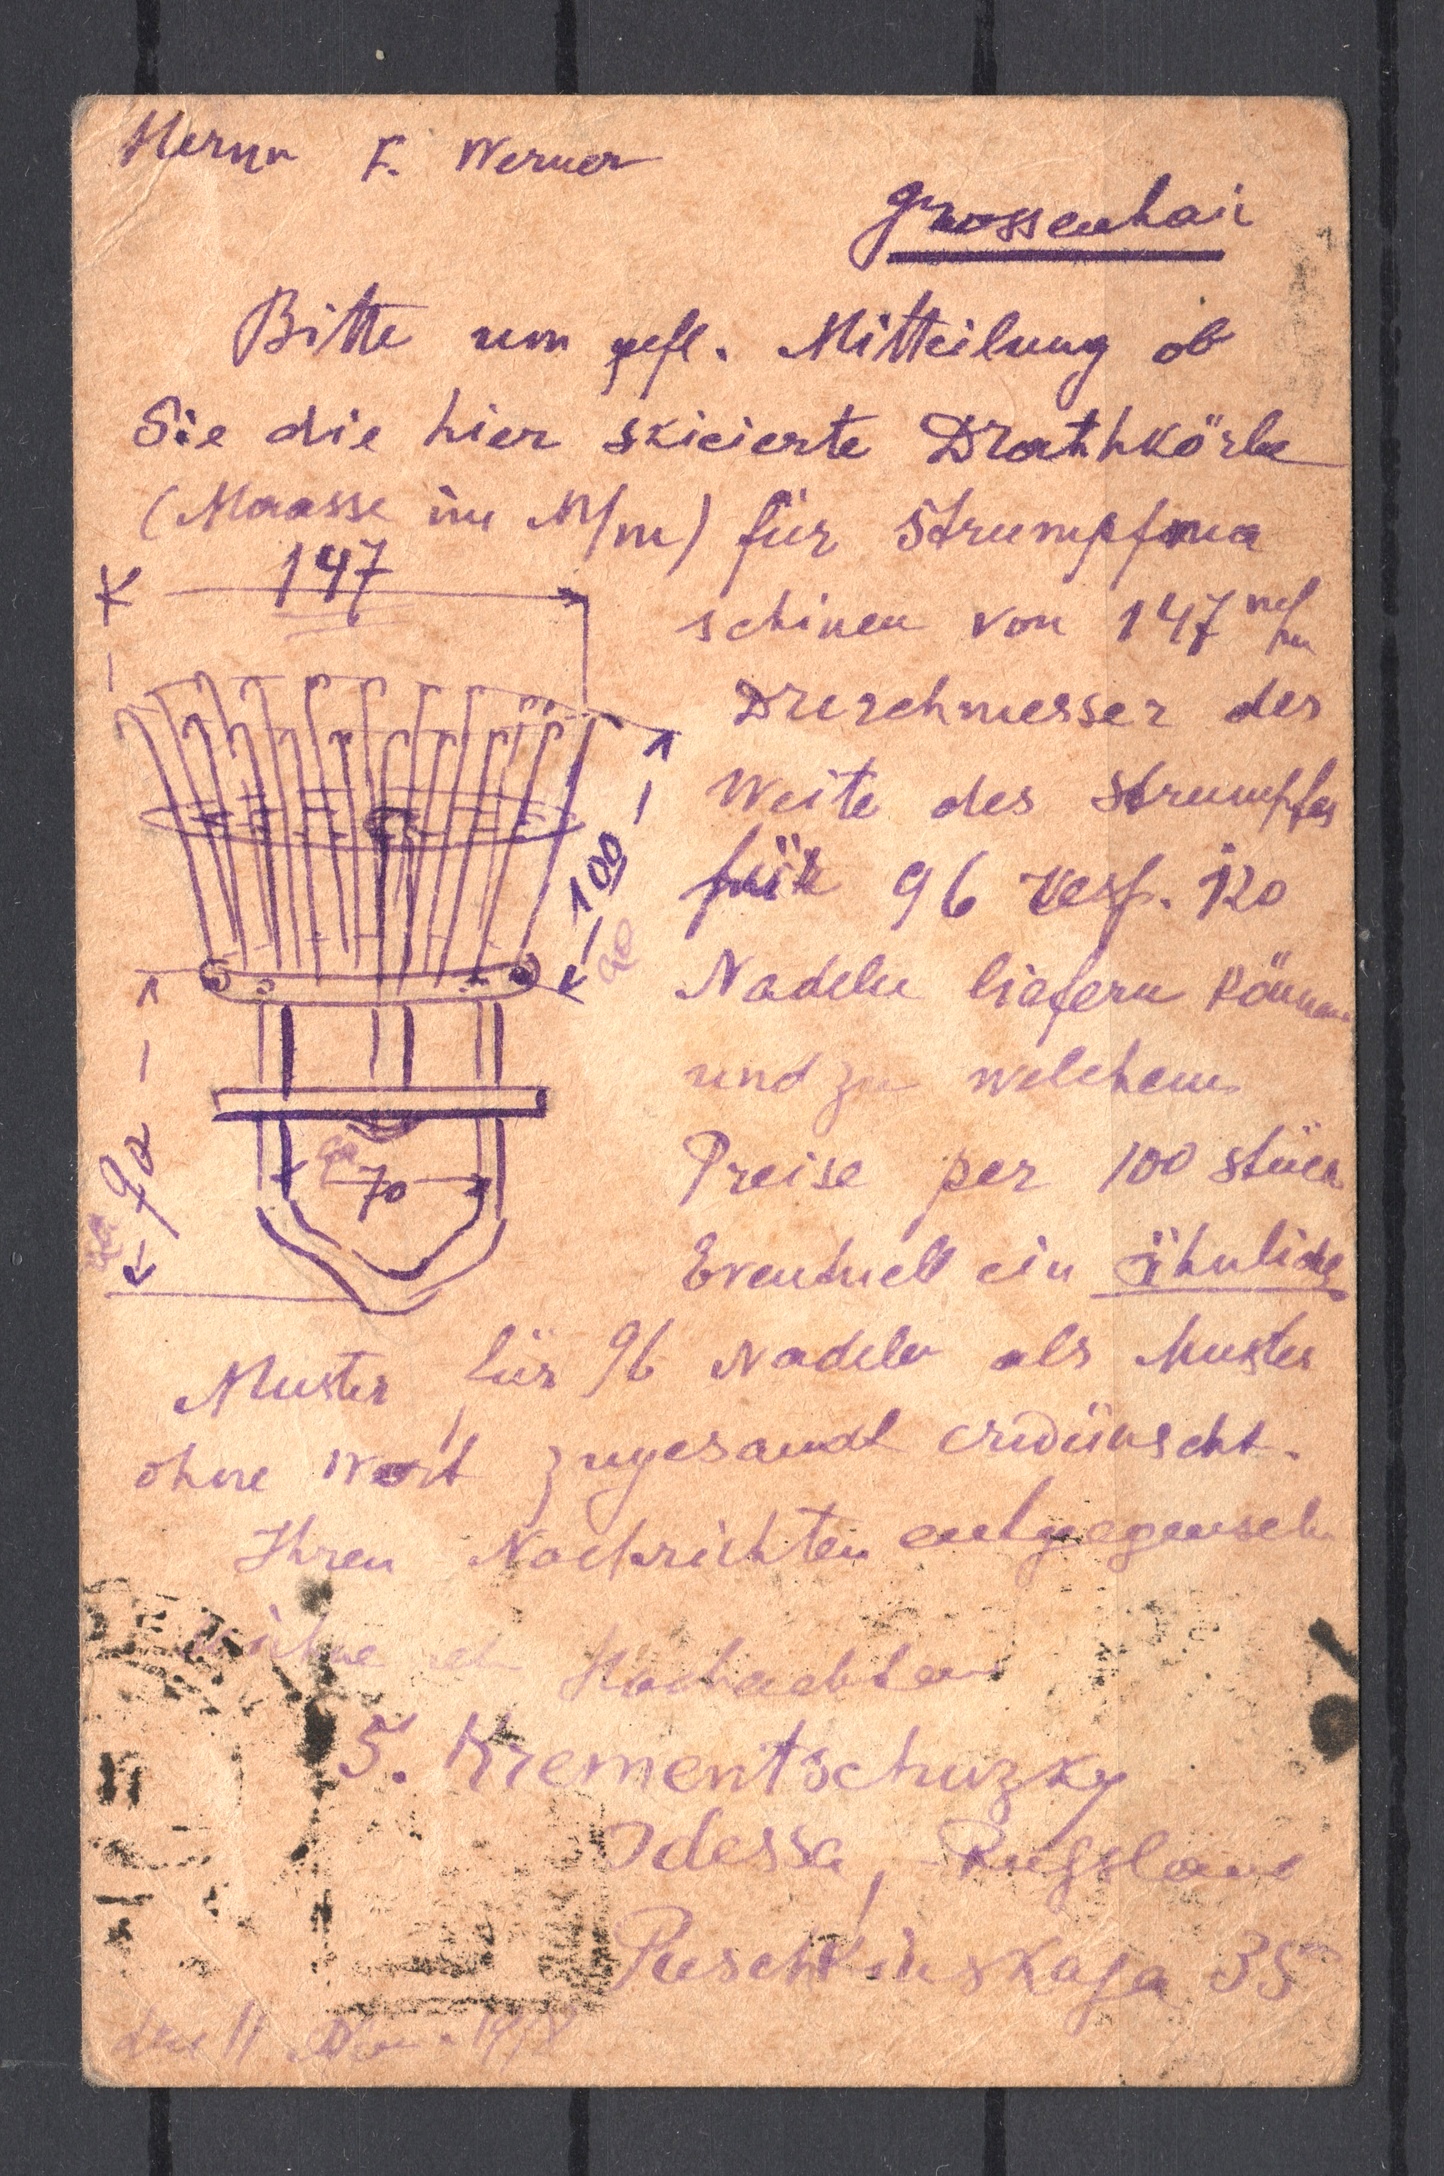 Herrn F. Werner
Grossenhain
Bitte um gefl. Mitteilung ob
Sie die hier skicierte Drathkörbe
(Maasse im M/m) für Strumpfma
147
schinen von 147 m/m
Durchmesser der
Weite des Strumpfes
100
für 96 resp. 120
Nadeln liefern können
und zu welchem
90
70
Preise per 100 Stück
Eventuell ein ähnliches
Muster für 96 Nadeln als Muster
ohne Wert zugesandt erwünscht.
Ihren Nachrichten entgegensehend
Hochachtend
S. Krementschuzky
Odessa, Russland
Puschkinskaja 35
den 11